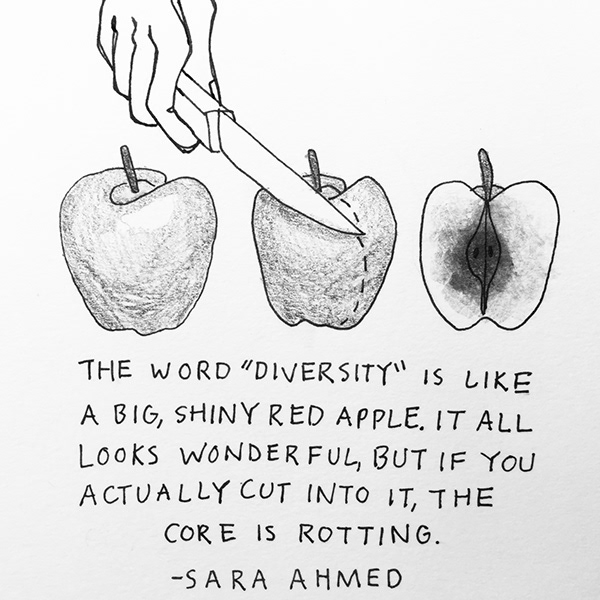 THE WORD "DIVERSITY" IS LIKE
A BIG, SHINY RED APPLE. IT ALL
LOOKS WONDERFUL, BUT IF YOU
ACTUALLY CUT INTO IT, THE
CORE IS ROTTING.
-SARA AHMED